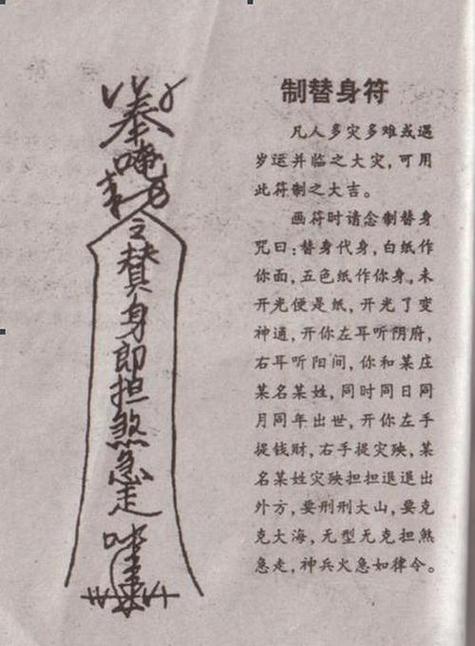 制替身符
凡人多灾多难或遇
岁运并临之大灾,可用
此符制之大吉。
画符时请念制替身
咒曰:替身代身,白纸作
你面,五色纸作你身,未
开光便是纸,开光了变
神通,开你左耳听阴府,
右耳听阳间,你和某庄
某名某姓,同时同日同
月同年出世,开你左手
提钱财,右手提灾殃,某
名某姓灾殃担担退退出
外方,要刑刑大山,要克
克大海,无型无克担煞
急走,神兵火急如律令。
奉
唵
令
替
身
即
担
煞
急
走